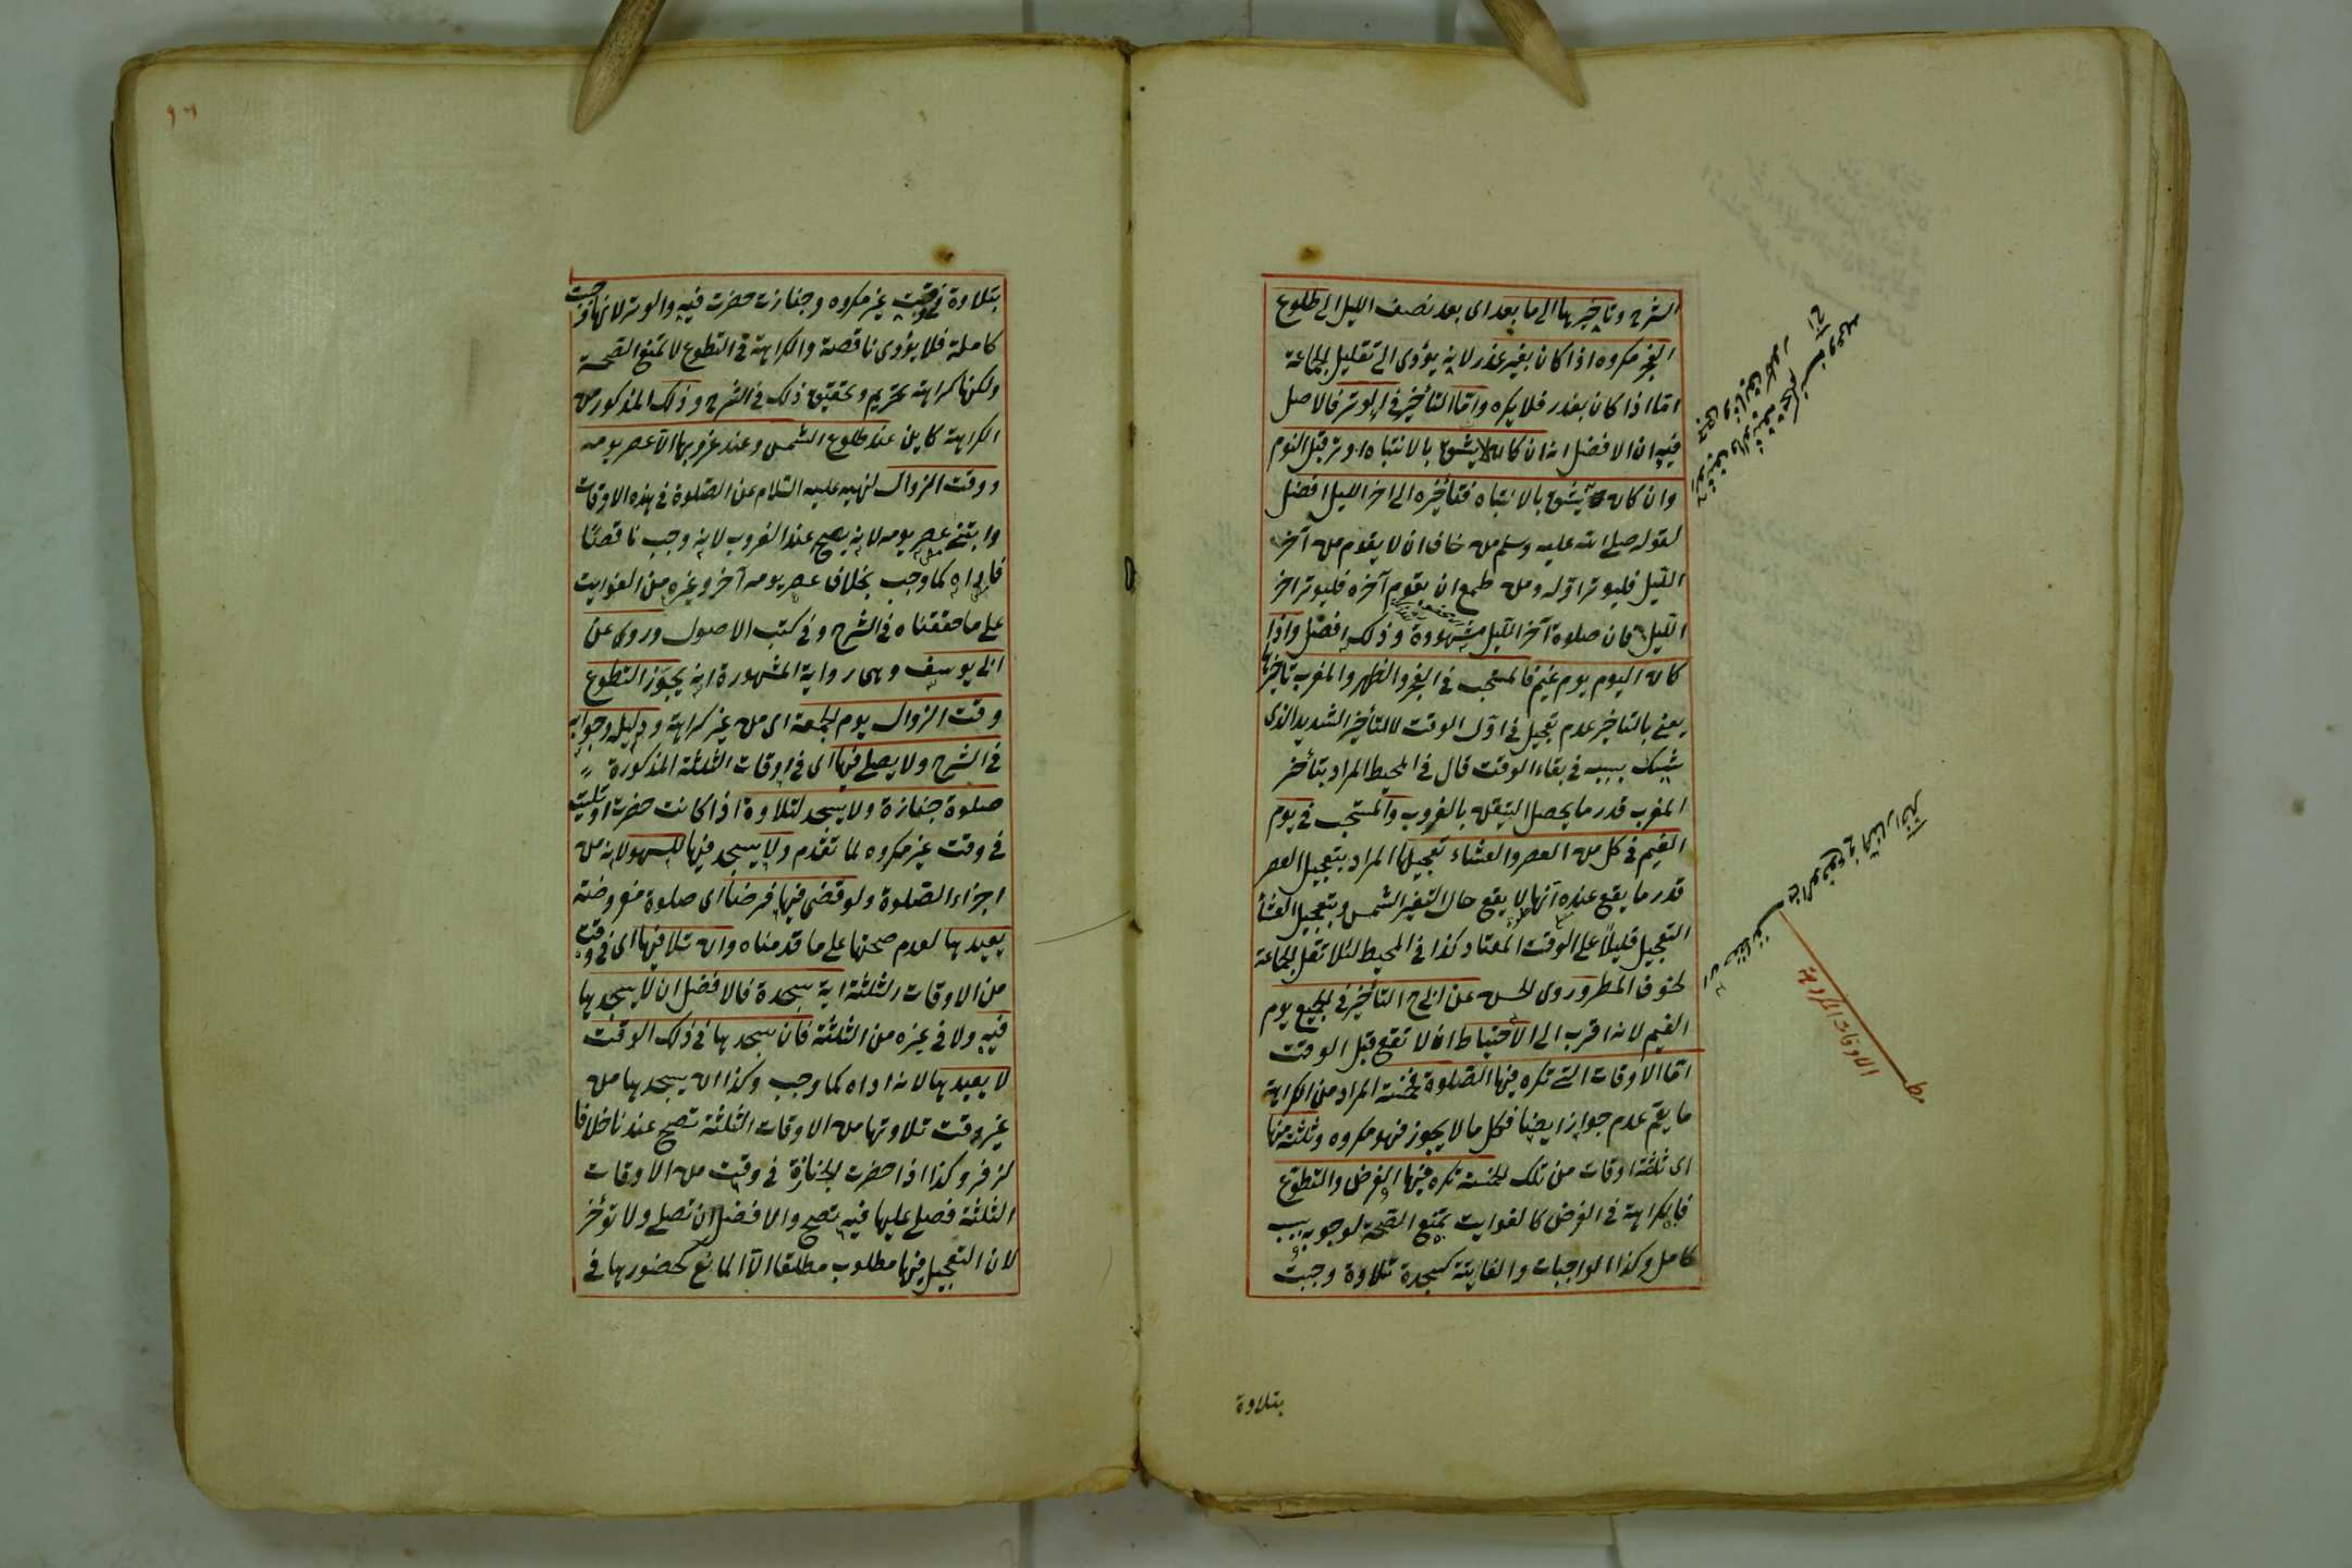 الشرح وتاخيرها الى ما بعد اى بعد نصف الليل الى طلوع
الفجر مكروه اذا كان بغير عذر لانه يؤدى الى تقليل الجماعة
اما اذا كان بعذر فلا يكره واما التأخير فى الوتر فالاصل
فيه ان الافضل انه ان كان لا يثق بالانتباه اوتر قبل النوم
وان كان يثق بالانتباه فتأخيره الى اخر الليل افضل
لقوله صلى الله عليه وسلم من خاف ان لا يقوم من آخر
الليل فليوتر اوله ومن طمع ان يقوم آخره فليوتر اخر
الليل فان صلوة آخر الليل مشهودة وذلك افضل واذا
كان اليوم يوم غيم فالمستحب فى الفجر والظهر والمغرب تاخيرها
يعنى بالتاخير عدم تعجيل فى اول الوقت لا التأخير الشديد الذى
يشك بسببه فى بقاء الوقت قال فى المحيط المراد بتأخر
المغرب قدر ما يحصل التيقن بالغروب والمستحب فى يوم
الغيم فى كل من العصر والعشاء تعجيلها المراد بتعجيل العصر
قدر ما يقع عنده انها لا يقع حال التغير الشمس وبتعجيل العشأ
التعجيل قليلاً على الوقت المعتاد كذا فى المحيط لئلا تقل الجماعة
لخوف المطر وروى الحسن عن ابى ح التأخير فى الجميع يوم
الغيم لانه اقرب الى الاحتياط لا تقع قبل الوقت
اما الاوقات التى تكره فيها الصلوة فخمسة المراد من الكراهة
ما يعم عدم جواز ايضا فكل ما لا يجوز فهو مكروه وثلثة منها
اى ثلثة اوقات من تلك الخمسة تكره فيها الفرض والتطوع
فالكراهة فى الفرض كالفوايت تمنع الصحة لوجوبه بسبب
كامل وكذا الواجبات والفايتة كسجدة تلاوة وجبت
بتلاوة
مط
الاوقات المكروهة
بتلاوة فى وقت غير مكروه وجنازت حضرت فيه والوتر لانها وجبت
كاملة فلا يؤدى ناقصة والكراهة فى التطوع لا تمنع الصحة
ولكنها كراهة تحريم وتحقيق ذلك فى الشرح وذلك المذكور من
الكراهة كاين عند طلوع الشمس وعند غروبها الا عصر يومه
ووقت الزوال لنهيه عليه السلام عن الصلوة فى هذه الاوقات
عصر يومه لانه يصح عند الغروب لانه وجب ناقصًا
فاداه كما وجب بخلاف عصر يومه آخر وغيره من الفوايت
على ما حققناه فى الشرح وفى كتب الاصول وروى عن
ابى يوسف وهى رواية المشهورة انه يجوّز التطوع
وقت الزوال يوم الجمعة اى من غير كراهة ودليله وجوابه
فى الشرح ولا يصلى فيها اى فى اوقات الثلثة المذكورة
صلوة جنازة ولا يسجد لتلاوة اذا كانت حضرت او تليت
فى وقت غير مكروه لما تقدم ولا يسجد فيها للسهو لانه من
اجزاء الصلوة ولو قضى فيها فرضا اى صلوة مفروضة
يعيدها لعدم صحتها على ما قدمناه وان تلا فيها اى فى وقت
من الاوقات الثلثة اية سجدة فالافضل ان لا يسجدها
فيه ولا فى غيره من الثلثة فان سجدها فى ذلك الوقت
لا يعيدها لانه اداه كما وجب وكذا ان يسجدها من
غير وقت تلاوتها من الاوقات الثلثة تصح عندنا خلافا
لزفر وكذا اذا حضرت الجنازة فى وقت من الاوقات
الثلثة فصلى عليها فيه تصح والافضل ان تصلى ولا تؤخر
لان التعجيل فيها مطلوب مطلقا الا لمانع كحضورها فى